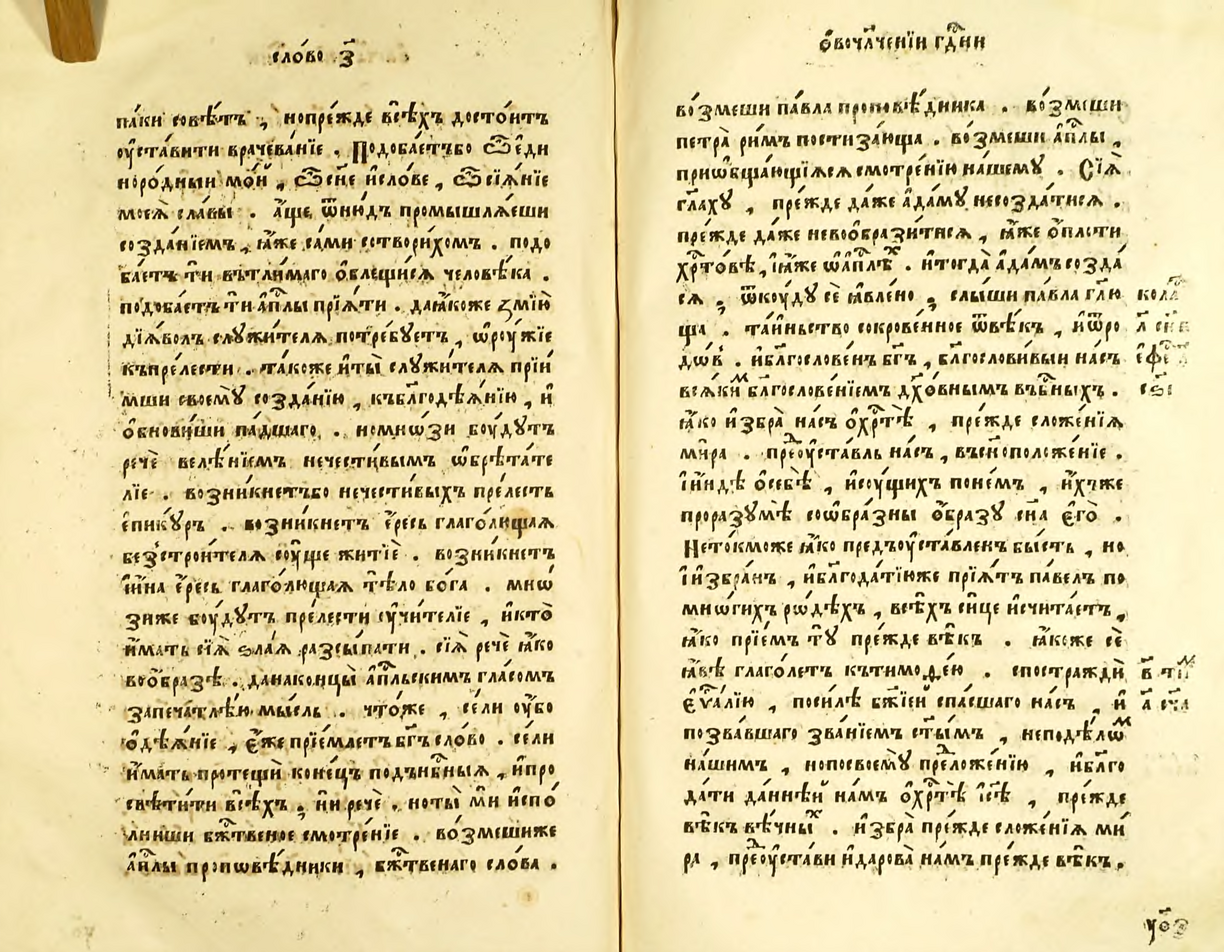 сло́во з҃
па́ки совѣ́тъ , нопре́жде всѣ́хъ досто́итъ
оу҆ста́вити врачева́нїе . Подоба́етъбо ѿ є҆ди
норо́дныи мо́й , ѿ сн҃е и҆сло́ве , ѿ сїѧ́нїе
моеѧ̀ сла́вы . а҆́ще ѿню́дъ промышлѧ́еши
созда́нїемъ , ꙗ҆́же са́ми сотвори́хомъ . подо
ба́етъ ти вътлѣ́маго ѡ҆блещи́сѧ человѣ́ка .
подоба́етъ ти а҆пⷭ҇лы прїѧ́ти . даꙗ҆́коже ѕмїю̀
дїѧ́волъ слꙋжи́телѧ потре́бꙋетъ , ѡ҆рꙋ́жїе
къпре́лести . та́коже и҆ты̀ слꙋжи́телѧ прїи́
мши своемꙋ̀ созда́нїю , къбл҃годѣѧ́нїю , и҆
ѡ҆бнови́ши па́дшаго . номно́зи бо́удꙋтъ
речѐ велѣ́нїемъ нечести́вымъ ѡ҆брѣта́те
лїе . возни́кнетъбо нечести́выхъ пре́лесть
є҆пикꙋ́ръ . возни́кнетъ є҆́ресь глаго́лющаѧ
безстрои́телѧ сꙋ́ще житїѐ . возни́кнетъ
и҆и҆́на є҆́ресь глаго́лющаѧ тѣ́ло бо́га . мно́
зиже бо́удꙋтъ пре́лести оу҆чи́телїе , и҆кто̀
и҆́мать сїѧ̀ ѕла́ѧ разсы́пати . сїѧ̀ речѐ ꙗ҆́ко
воо́бразѣ . данаконцы̀ а҆пⷭ҇льскимъ гла́сомъ
запечатлѣ́ю мы́сль . что́же , се́ли оу҆́бо
ѻ҆дѣѧ́нїе , є҆́же прїе́млетъ бг҃ъ сло́во . се́ли
и҆́мать протещѝ коне́цъ подънб҃ныѧ , и҆про
свѣти́ти всѣ́хъ , ни речѐ . ноты̀ ми и҆спо́
лниши бж҃твеное смотре́нїе . во́змешиже
а҆пⷭ҇лы проповѣ́дники , бж҃твенаго сло́ва .
ѡ҆вочл҃ченїи гдⷭ҇ни
во́змеши па́вла проповѣ́дника . во́змеши
петра̀ ри́мъ постиза́юща . во́змеши а҆пⷭ҇лы ,
приѡ҆бща́ющїѧсѧ смотре́нїю на́шемꙋ . Сїѧ̀
гл҃ахꙋ , пре́жде да́же а҆да́мꙋ несозда́тисѧ .
пре́жде да́же невоо҆брази́тисѧ , ꙗ҆́же ѡ҆пло́ти
хрⷭ҇то́вѣ , ꙗ҆́же ѡ҆а҆пⷭ҇лѣⷯ . и҆тогда̀ а҆да́мъ созда́
сѧ , ѿкꙋ́дꙋ сѐ ꙗ҆вле́но , слы́ши па́вла гл҃ю
ща . та́иньство сокрове́нное ѿвѣ́къ , и҆ѿро
дѡ́въ . и҆бл҃гослове́нъ бг҃ъ , бл҃гослови́выи на́съ
всѧ́киⷨ бл҃гослове́нїемъ дꙋхо́внымъ вънбⷭ҇ныхъ .
ꙗ҆́ко и҆збра̀ на́съ ѡ҆хрⷭ҇тѣ̀ , пре́жде сложе́нїѧ
ми́ра . преоу҆ста́вль на́съ , въсн҃оположе́нїе .
и҆и҆ндѣ̀ ѡ҆себѣ̀ , и҆сꙋ́щихъ поне́мъ , и҆́хъже
проразꙋмѣ̀ соѡ҆бра́зны ѡ҆́бразꙋ сн҃а є҆гѡ̀ .
Нето́кможе ꙗ҆́ко предъоу҆ста́вленъ бы́сть , но
и҆и҆збра́нъ , и҆бл҃года́тїюже прїѧ́тъ па́велъ по
мно́гихъ ро́дѣхъ , всѣ́хъ си́це и҆счита́етъ ,
ꙗ҆́ко прїе́мъ тꙋ̀ пре́жде вѣ́къ . ꙗ҆́коже сѐ
ꙗ҆́вѣ глаго́летъ кътимоѳе́ю . спостра́жди
є҆ѵⷢ҇а́лїю , поси́лѣ бж҃їеи спа́сшаго на́съ , и҆
позва́вшаго зва́нїемъ ст҃ы́мъ , неподѣ́лѡⷨ
на́шимъ , нопосвоемꙋ̀ преⷣложе́нїю , и҆бл҃го
да́ти да́ннѣй на́мъ ѡ҆хрⷭ҇тѣ̀ і҆с҃ѣ , пре́жде
вѣ́къ вѣ́чныⷯ . и҆збра̀ пре́жде сложе́нїѧ ми́
ра , преоу҆ста́ви и҆дарова̀ на́мъ пре́жде вѣ́къ .